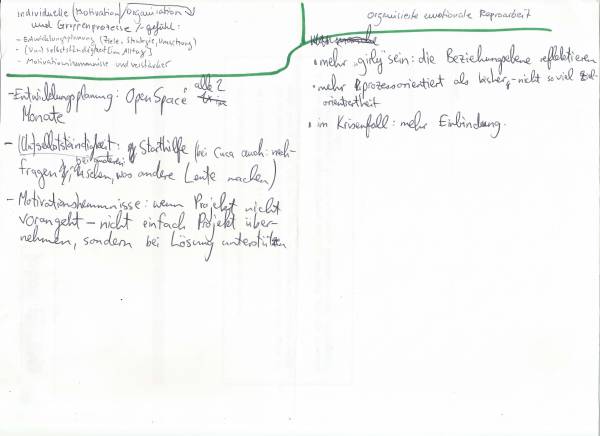 individuelle (Motivation/Organisation)
und Gruppenprozesse /-gefühl:
- Entwicklungsplanung (Ziele, Strategie, Umsetzung)
- (Un)selbstständigkeit (im Alltag)
- Motivationshemmnisse und verstärker
- Entwicklungsplanung: Open Space alle 2
Monate
- (Un)selbstständigkeit: Starthilfe (bei Cuca auch: nach-
fragen, was andere Leute machen)
- Motivationshemmnisse: wenn Projekt nicht
vorangeht – nicht einfach Projekt über-
nehmen, sondern bei Lösung unterstützen
organisierte emotionale Reproarbeit
• mehr "girly" sein: die Beziehungsebene reflektieren
• mehr prozessorientiert als bisher - nicht so viel ziel-
orientiertheit
• im Krisenfall: mehr Einbindung.